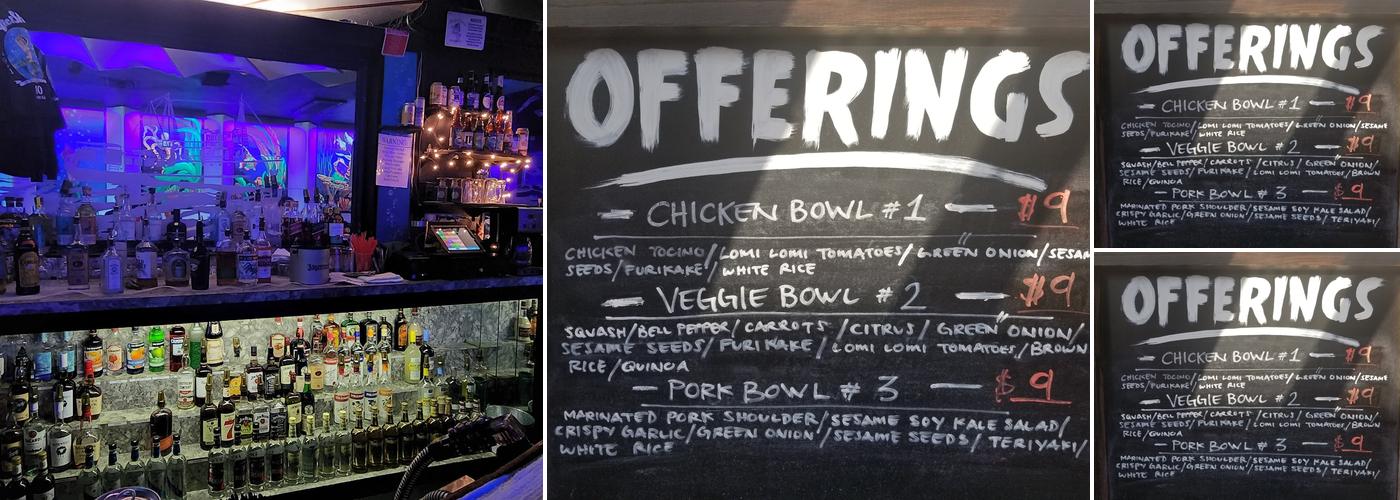 WARNING
OFFERINGS
— CHICKEN BOWL #1 — $9
CHICKEN TOCINO/LOMI LOMI TOMATOES/GREEN ONION/SESAM
SEEDS/FURIKAKE/WHITE RICE
— VEGGIE BOWL #2 — $9
SQUASH/BELL PEPPER/CARROTS/CITRUS/GREEN ONION/
SESAME SEEDS/FURIKAKE/LOMI LOMI TOMATOES/BROWN
RICE/QUINOA
— PORK BOWL #3 — $9
MARINATED PORK SHOULDER/SESAME SOY KALE SALAD/
CRISPY GARLIC/GREEN ONION/SESAME SEEDS/TERIYAKI/
WHITE RICE
OFFERINGS
— CHICKEN BOWL #1 — $9
CHICKEN TOCINO/LOMI LOMI TOMATOES/GREEN ONION/SESAME
SEEDS/FURIKAKE/WHITE RICE
— VEGGIE BOWL #2 — $9
SQUASH/BELL PEPPER/CARROTS/CITRUS/GREEN ONION/
SESAME SEEDS/FURIKAKE/LOMI LOMI TOMATOES/BROWN
RICE/QUINOA
— PORK BOWL #3 — $9
MARINATED PORK SHOULDER/SESAME SOY KALE SALAD/
CRISPY GARLIC/GREEN ONION/SESAME SEEDS/TERIYAKI/
WHITE RICE
OFFERINGS
— CHICKEN BOWL #1 — $9
CHICKEN TOCINO/LOMI LOMI TOMATOES/GREEN ONION/SESAME
SEEDS/FURIKAKE/WHITE RICE
— VEGGIE BOWL #2 — $9
SQUASH/BELL PEPPER/CARROTS/CITRUS/GREEN ONION/
SESAME SEEDS/FURIKAKE/LOMI LOMI TOMATOES/BROWN
RICE/QUINOA
— PORK BOWL #3 — $9
MARINATED PORK SHOULDER/SESAME SOY KALE SALAD/
CRISPY GARLIC/GREEN ONION/SESAME SEEDS/TERIYAKI/
WHITE RICE